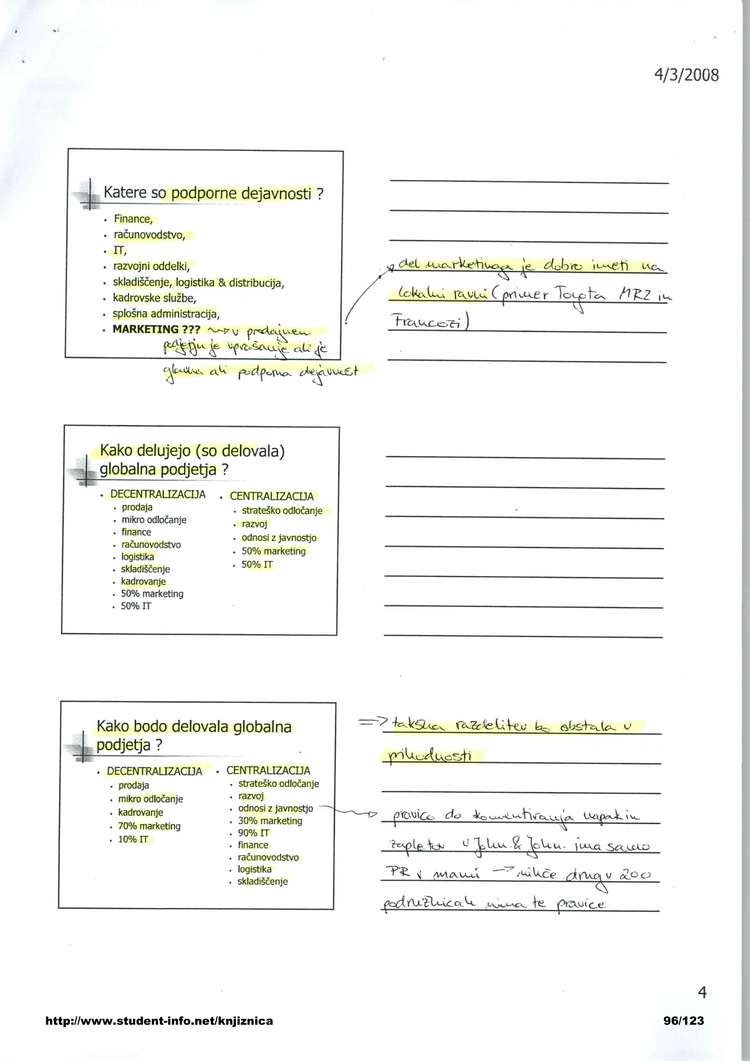 4/3/2008
Katere so podporne dejavnosti ?
• Finance,
• računovodstvo,
• IT,
• razvojni oddelki,
• skladiščenje, logistika & distribucija,
• kadrovske službe,
• splošna administracija,
• MARKETING ??? v prodajnem
podjetju je vprašanje ali je
glavna ali podporna dejavnost
del marketinga je dobro imeti na
lokalni ravni (primer Toyota MR2 in
Francozi)
Kako delujejo (so delovala)
globalna podjetja ?
• DECENTRALIZACIJA
• prodaja
• mikro odločanje
• finance
• računovodstvo
• logistika
• skladiščenje
• kadrovanje
• 50% marketing
• 50% IT
• CENTRALIZACIJA
• strateško odločanje
• razvoj
• odnosi z javnostjo
• 50% marketing
• 50% IT
Kako bodo delovala globalna
podjetja ?
• DECENTRALIZACIJA
• prodaja
• mikro odločanje
• kadrovanje
• 70% marketing
• 10% IT
• CENTRALIZACIJA
• strateško odločanje
• razvoj
• odnosi z javnostjo
• 30% marketing
• 90% IT
• finance
• računovodstvo
• logistika
• skladiščenje
=> takšna razdelitev bo obstala v
prihodnosti
pravico do komentiranja napak in
zapletov v John. & John. ima samo
PR v mami → nihče drug v 200
podružnicah nima te pravice
4
http://www.student-info.net/knjiznica
96/123